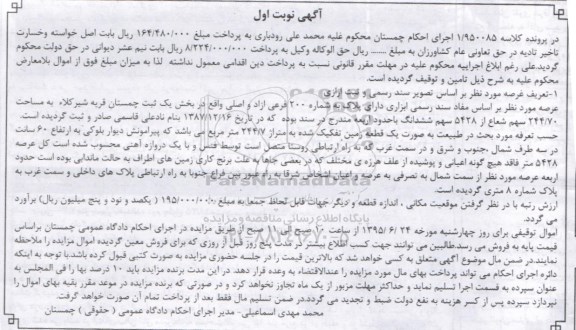 آگهی نوبت اول
در پرونده کلاسه 1/950085 اجرای احکام چمستان محکوم علیه محمد علی رودباری به پرداخت مبلغ 164/480/000 ریال بابت اصل خواسته وخسارت
تاخیر تادیه در حق تعاونی عام کشاورزان به مبلغ ....... ریال حق الوکاله وکیل به پرداخت 8/224/000/000 ریال بابت نیم عشر دیوانی در حق دولت محکوم
گردید.علی رغم ابلاغ اجراییه محکوم علیه در مهلت مقرر قانونی نسبت به پرداخت دین اقدامی معمول نداشته لذا به میزان مبلغ فوق از اموال بلامعارض
محکوم علیه به شرح ذیل تامین و توقیف گردیده است.
1-تعریف عرصه مورد نظر بر اساس تصویر سند رسمی و سند ابرازی
عرصه مورد نظر بر اساس مفاد سند رسمی ابزاری دارای پلاک به شماره 200 فرعی ازاد و اصلی واقع در بخش یک ثبت چمستان قریه شیرکلاء به مساحت
244/70 سهم شعاع از 5428 سهم ششدانگ باحدود اربعه مندرج در سند بوده که در تاریخ 1387/12/16 بنام نادعلی قاسمی صادر و ثبت گردیده است.
حسب تعرفه مورد بحث در طبیعت به صورت یک قطعه زمین تفکیک شده به متراژ 244/7 متر مربع می باشد که پیرامونش دیوار بلوکی به ارتفاع 60 سانت
در سه طرف شمال ،جنوب و شرق و در سمت غرب که به راه ارتباطی روستا متصل است توسط فنس و با یک دروازه آهنی محسوب شده است کل عرصه
5428 متر فاقد هیچ گونه اعیانی و پوشیده از علف هرزه ی مختلف که در بعضی جاها به علت برنج کاری زمین های اطراف به حالت ماندابی بوده است حدود
اربعه عرصه مورد نظر از سمت شمال به تصرفی به عرصه و اعیان اشخاص شرقا به راه عبور بین فراغ جنوبا به راه ارتباطی پلاک های داخلی و سمت غرب به
پلاک شماره 8 متری گردیده است.
ارزش رتبه با در نظر گرفتن موقعیت مکانی ، اندازه قطعه و دیگر جهات قابل لحاظ جمعا به مبلغ 195/000/000 ( یکصد و نود و پنج میلیون ریال) برآورد
می گردد.
اموال توقیفی برای روز چهارشنبه مورخه 24 /6 /1395 از ساعت صبح الی صبح از طریق مزایده در اجرای احکام دادگاه عمومی چمستان براساس
قیمت پایه به فروش می رسد.طالبین می توانند جهت کسب اطلاع بیشتر در مدت پنج روز قبل از روزی که برای فروش معین گردیده اموال مزایده را ملاحظه
نمایند.در ضمن مال موضوع آگهی متعلق به کسی خواهد شد که بالاترین قیمت را در جلسه حضوری مزایده به صورت کتبی قبول کرده باشد.با توجه به اینکه
دائره اجرای احکام می تواند پرداخت بهای مال مورد مزایده را عندالاقتضاء به وعده قرار دهد. در این مدت برنده مزایده باید 10 درصد بها را فی المجلس به
عنوان سپرده به قسمت اجرا تسلیم نماید و حداکثر مهلت مزبور از یک ماه تجاوز نخواهد کرد و در صورتی که برنده مزایده در موعد مقرر بقیه بهای اموال را
نپردازد سپرده پس از کسر هزینه به نفع دولت ضبط و تجدید می گردد.در ضمن تسلیم مال فقط بعد از پرداخت تمام آن صورت خواهد گرفت.
محمد مهدی اسماعیلی- مدیر اجرای احکام دادگاه عمومی ( حقوقی ) چمستان